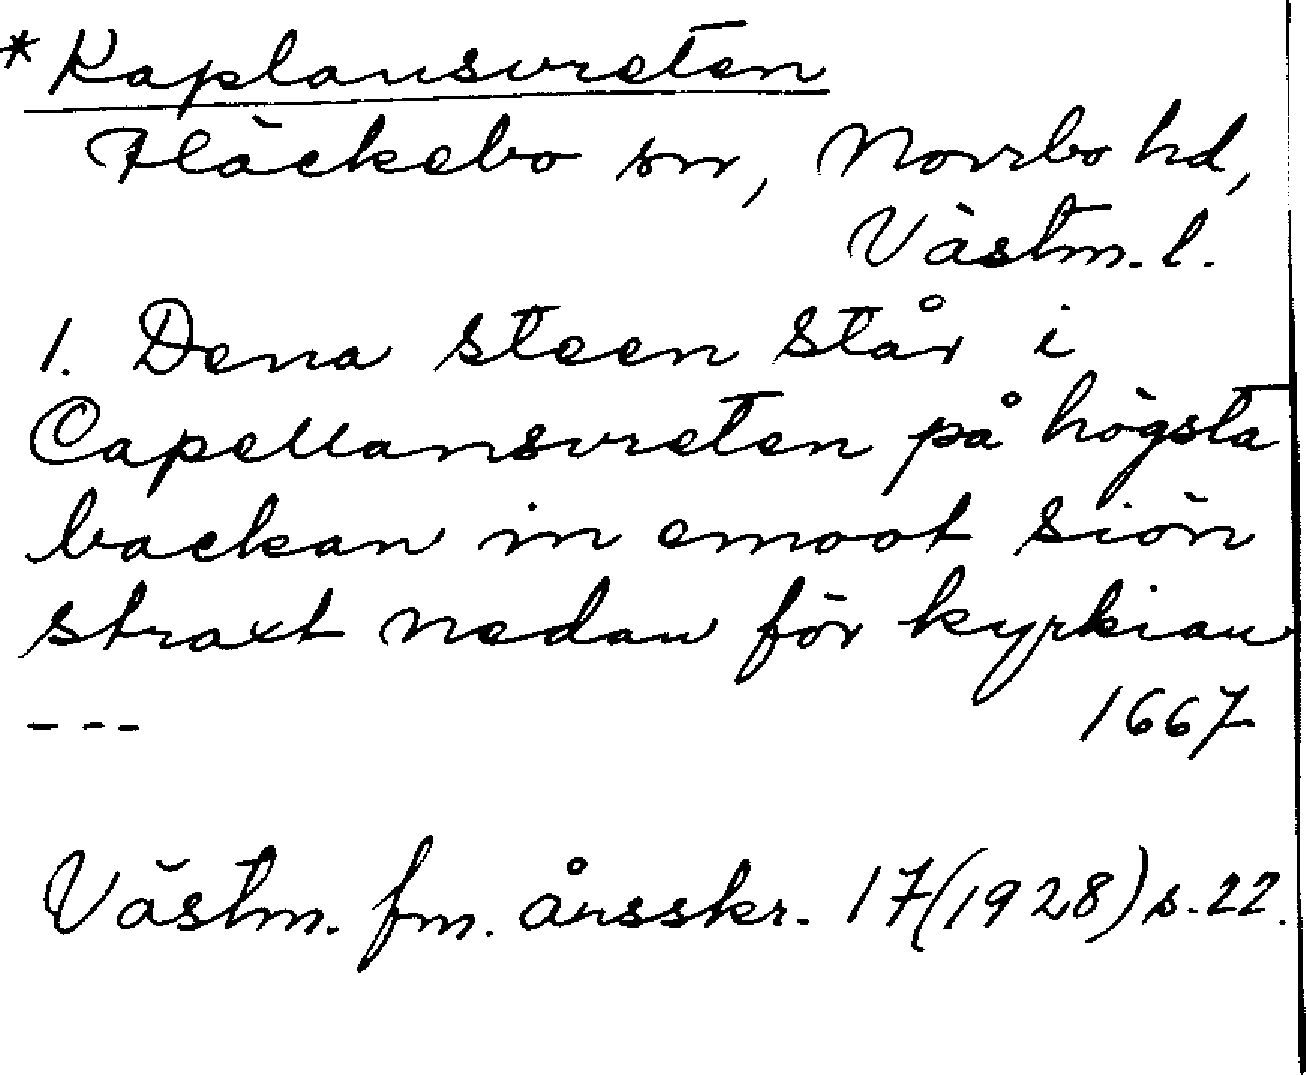 * Kaplansvreten
Fläckebo sn, Norrbo hd,
Västm. l.
1. Dena steen står i
Capellansvreten på högsta
backan in emoot siön
straxt nedan för kyrkian
--- 1667
Västm. fm. årsskr. 17 (1928) s. 22.